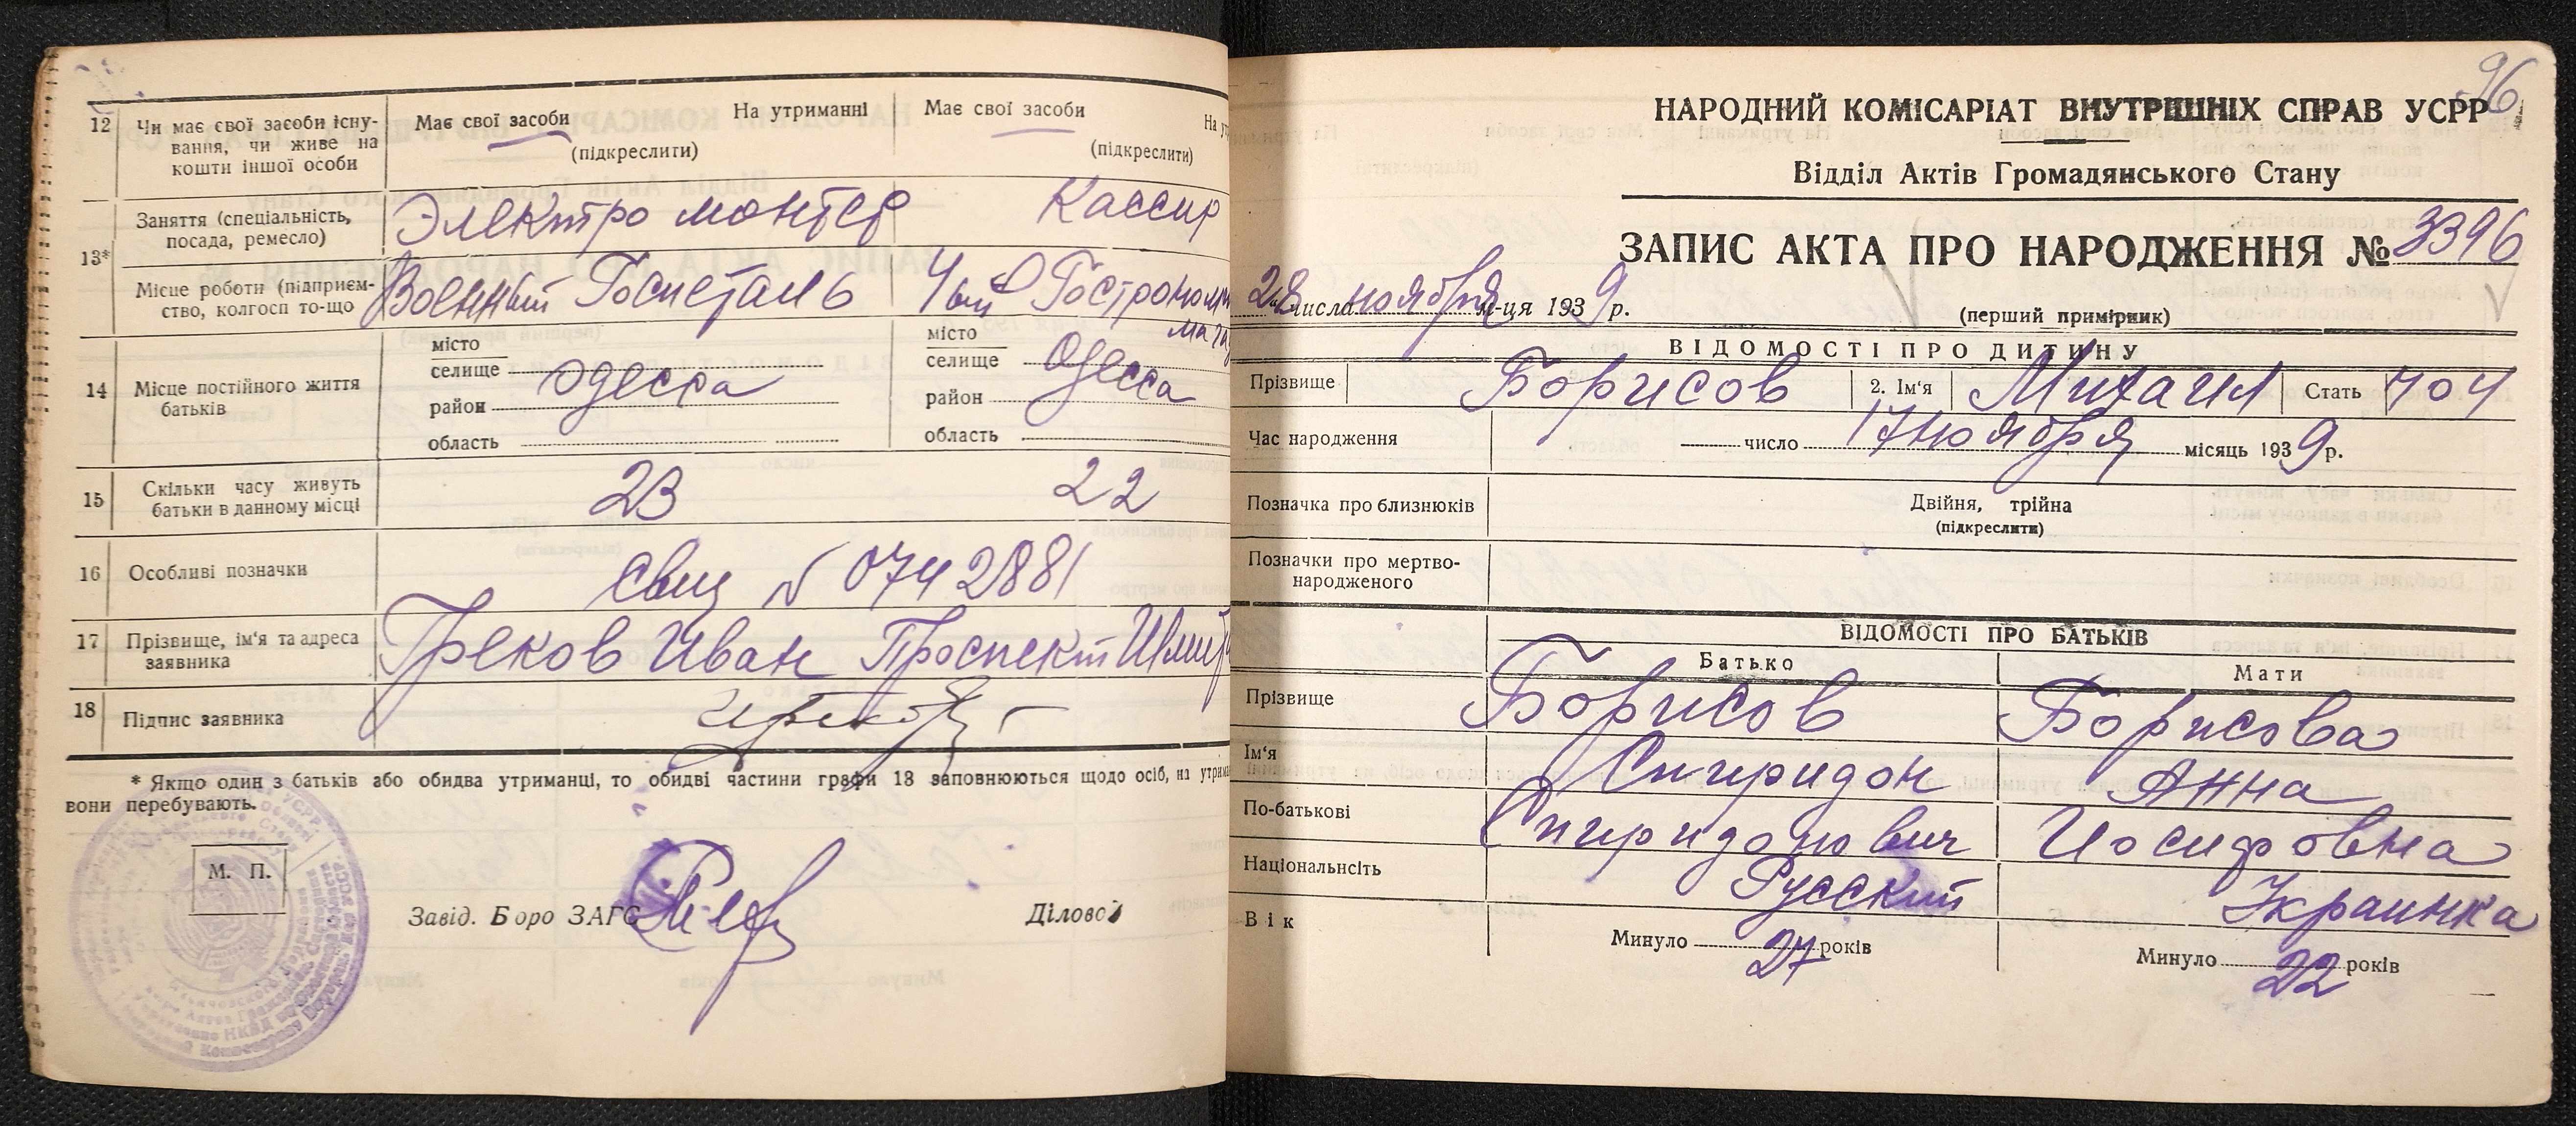 12 Чи має свої засоби існування, чи живе на кошти іншої особи
Має свої засоби На утриманні
(підкреслити)
Має свої засоби На
(підкреслити)
13* Заняття (спеціальність, посада, ремесло)
Электро монтер
Кассир
Місце роботи (підприємство, колгосп то-що
Военный Госпеталь
Гострономм
мага
14 Місце постійного життя батьків
місто
селище Одесса
район
область
місто
селище Одесса
район
область
15 Скільки часу живуть батьки в данному місці
23
22
16 Особливі позначки
Свид № 0742881
17 Прізвище, ім'я та адреса заявника
Греков Иван Проспект
18 Підпис заявника
* Якщо один з батьків або обидва утриманці, то обидві частини графи 13 заповнюються щодо осіб, на
вони перебувають.
М. П.
Завід. Бюро ЗАГС
Діловод
96
НАРОДНИЙ КОМІСАРІАТ ВНУТРІШНІХ СПРАВ УСРР
Відділ Актів Громадянського Стану
ЗАПИС АКТА ПРО НАРОДЖЕННЯ № 3396
28 числа ноября м-ця 1939 р.
(перший примірник)
ВІДОМОСТІ ПРО ДИТИНУ
Прізвище Борисов 2. Ім'я Михаил Стать чоч
Час народження число 17 ноября місяць 1939 р.
Позначка про близнюків
Двійня, трійна
(підкреслити)
Позначки про мертвонародженого
ВІДОМОСТІ ПРО БАТЬКІВ
Батько Мати
Прізвище Борисов Борисова
Ім'я Спиридон Анна
По-батькові Спиридонович Иосифовна
Національність Русский Украинка
Вік Минуло 27 років Минуло 22 років